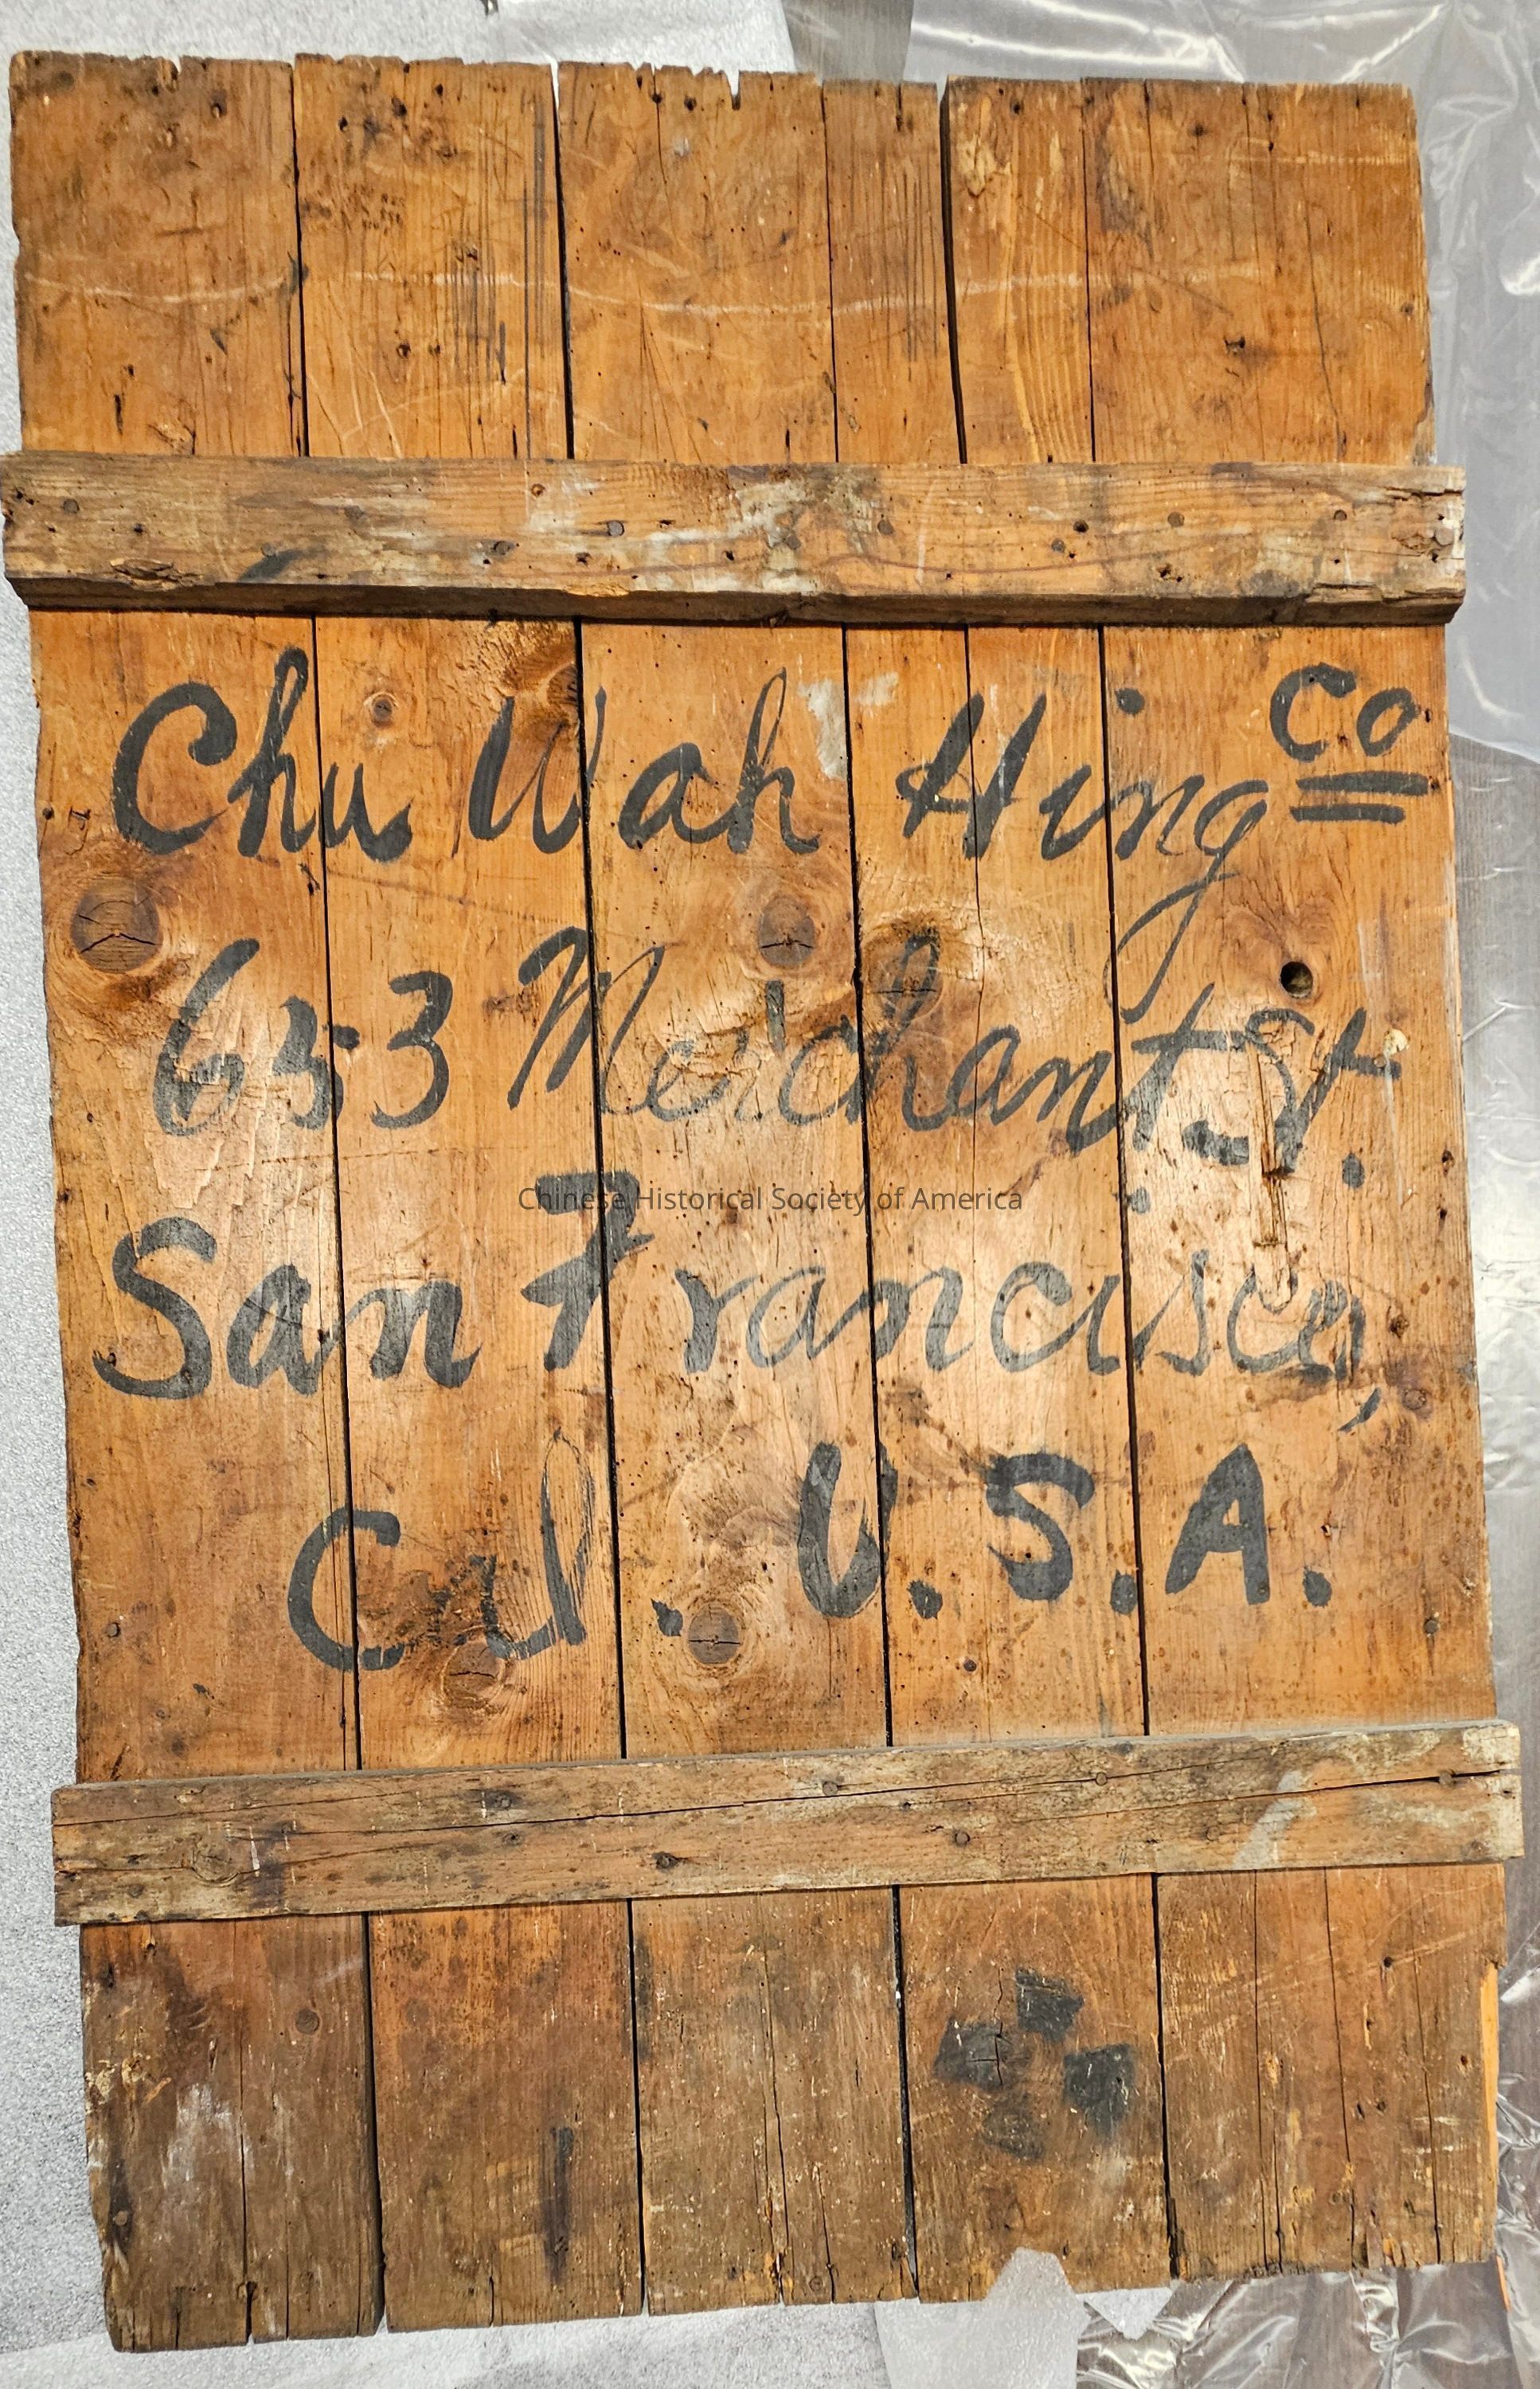 Chu Wah Hing Co
653 Merchant St.
Chinese Historical Society of America
San Francisco,
Cal. U.S.A.